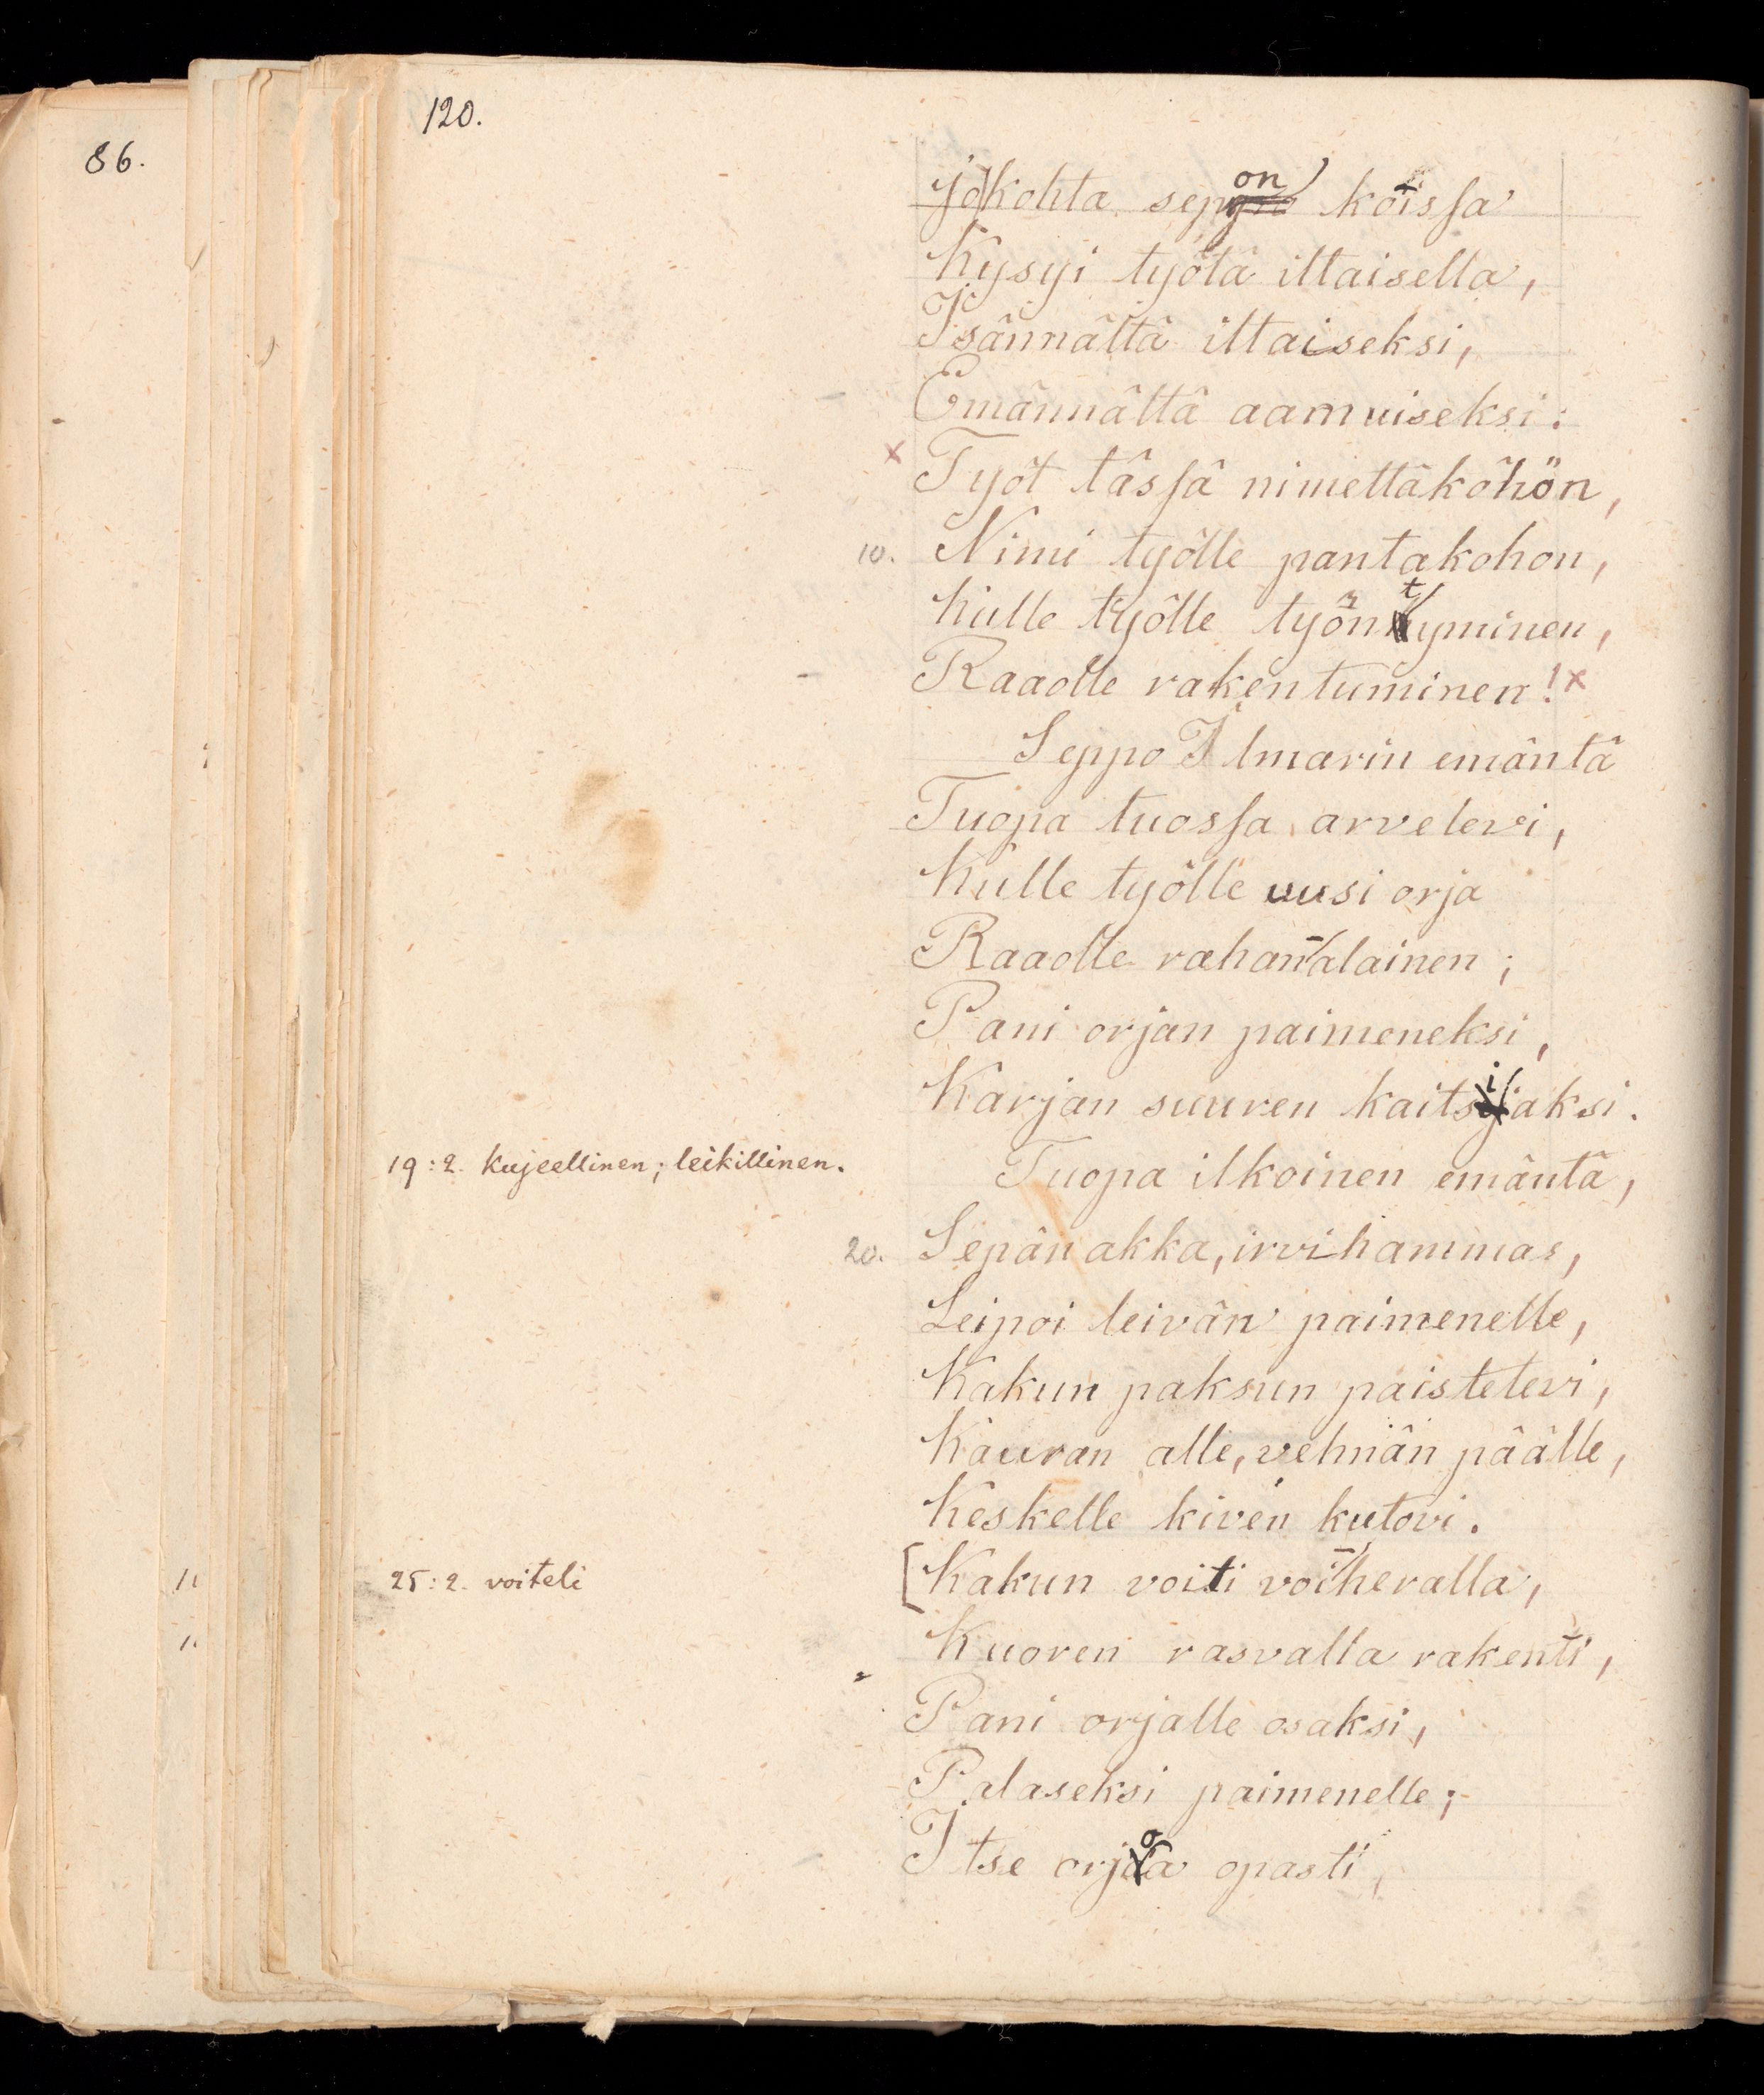 86.
120.
jokohta sepon koissa
Kysyi työtä iltaisella,
Isännältä iltaiseksi,
Emännältä aamuiseksi:
x Työt tässä nimettäköhön,
10. Nimi työlle pantakohon,
Kulle työlle työntyminen,
Raaolle rakentuminen! x
Seppo Ilmarin emäntä
Tuopa tuossa arvelevi,
Kulle työlle uusi orja
Raaolle rahan-alainen;
Pani orjan paimeneksi,
Karjan suuren kaitsijaksi.
19:2. kujeellinen; leikillinen.
Tuopa ilkoinen emäntä,
20. Sepän akka, irvihammas,
Leipoi leivän paimenelle,
Kakun paksun paistelevi,
Kauran alle, vehnän päälle,
Keskelle kiven kutovi.
25:2. voiteli
[Kakun voiti voi-heralla,
Kuoren rasvalla rakenti,
Pani orjalle osaksi,
Palaseksi paimenelle;
Itse orjoa opasti,